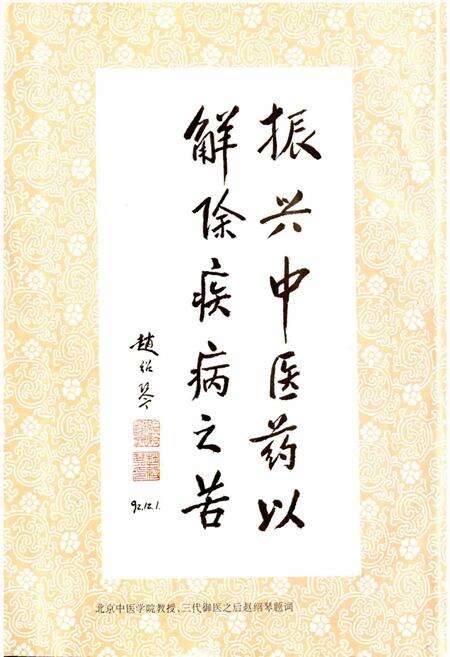 振兴中医药以
解除疾病之苦
趙绍琴
92.12.1.
北京中医学院教授，三代御医之后赵绍琴题词